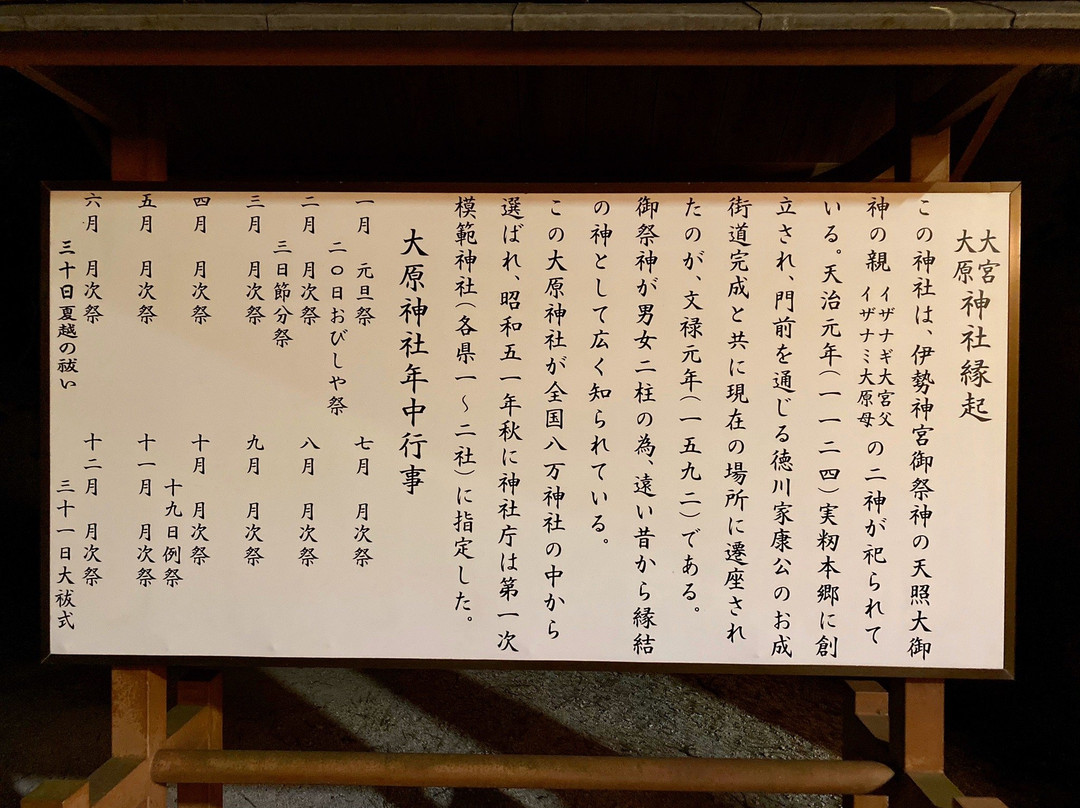 大宮
大原
神社縁起
この神社は、伊勢神宮御祭神の天照大御
神の親 イザナギ大宮父
イザナミ大原母
の二神が祀られて
いる。天治元年(一一二四)実籾本郷に創
立され、門前を通じる徳川家康公のお成
街道完成と共に現在の場所に遷座され
たのが、文禄元年(一五九二)である。
御祭神が男女二柱の為、遠い昔から縁結
の神として広く知られている。
この大原神社が全国八万神社の中から
選ばれ、昭和五一年秋に神社庁は第一次
模範神社(各県一～二社)に指定した。
大原神社年中行事
一月 元旦祭
二〇日おびしゃ祭
二月 月次祭
三日節分祭
三月 月次祭
四月 月次祭
五月 月次祭
六月 月次祭
三十日夏越の祓い
七月 月次祭
八月 月次祭
九月 月次祭
十月 月次祭
十九日例祭
十一月 月次祭
十二月 月次祭
三十一日大祓式